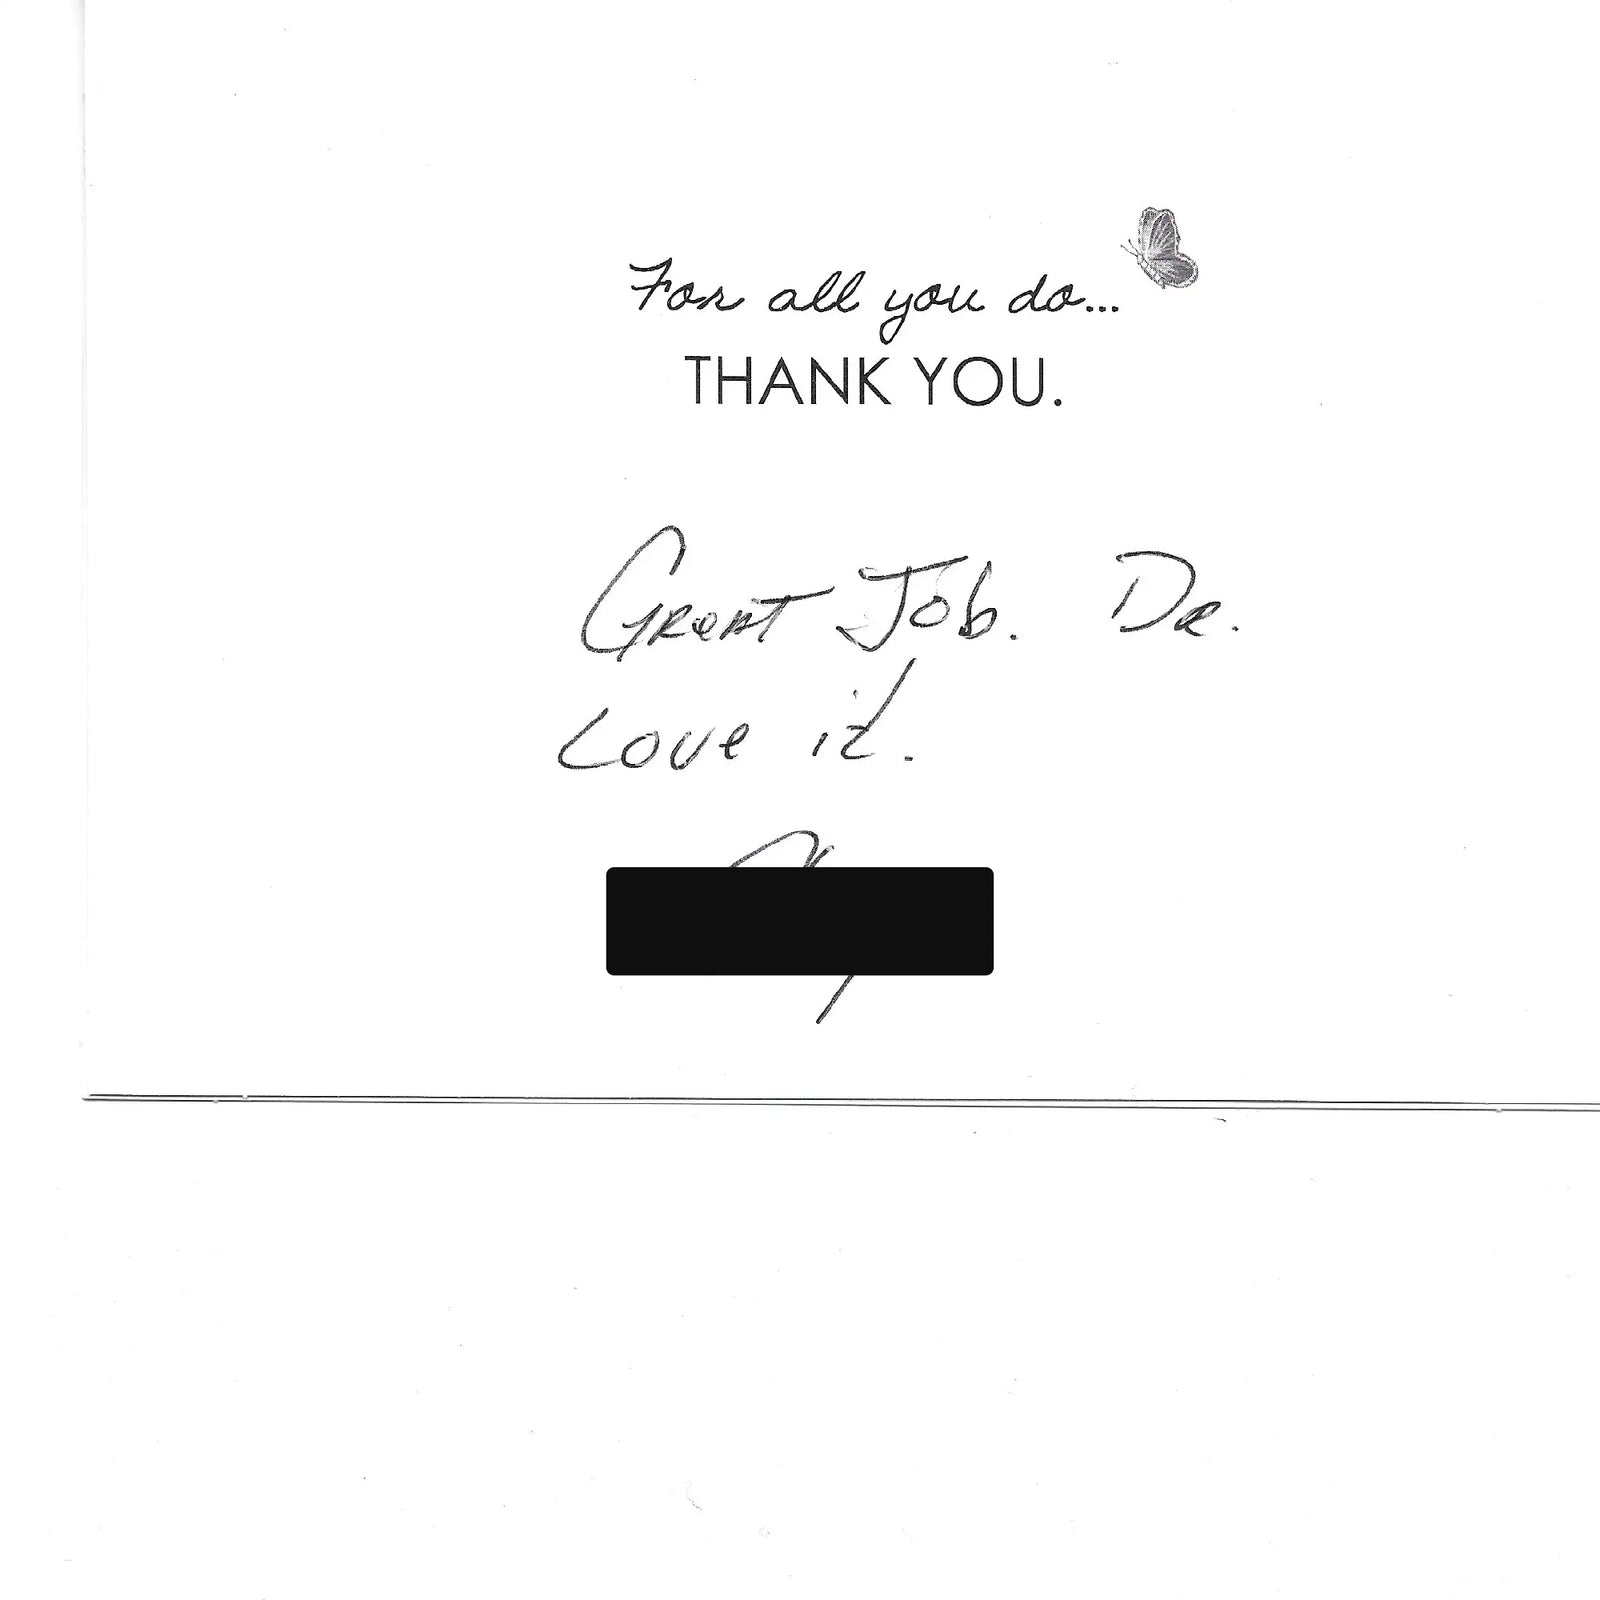 For all you do...
THANK YOU.
Great Job. Dr.
Love it.